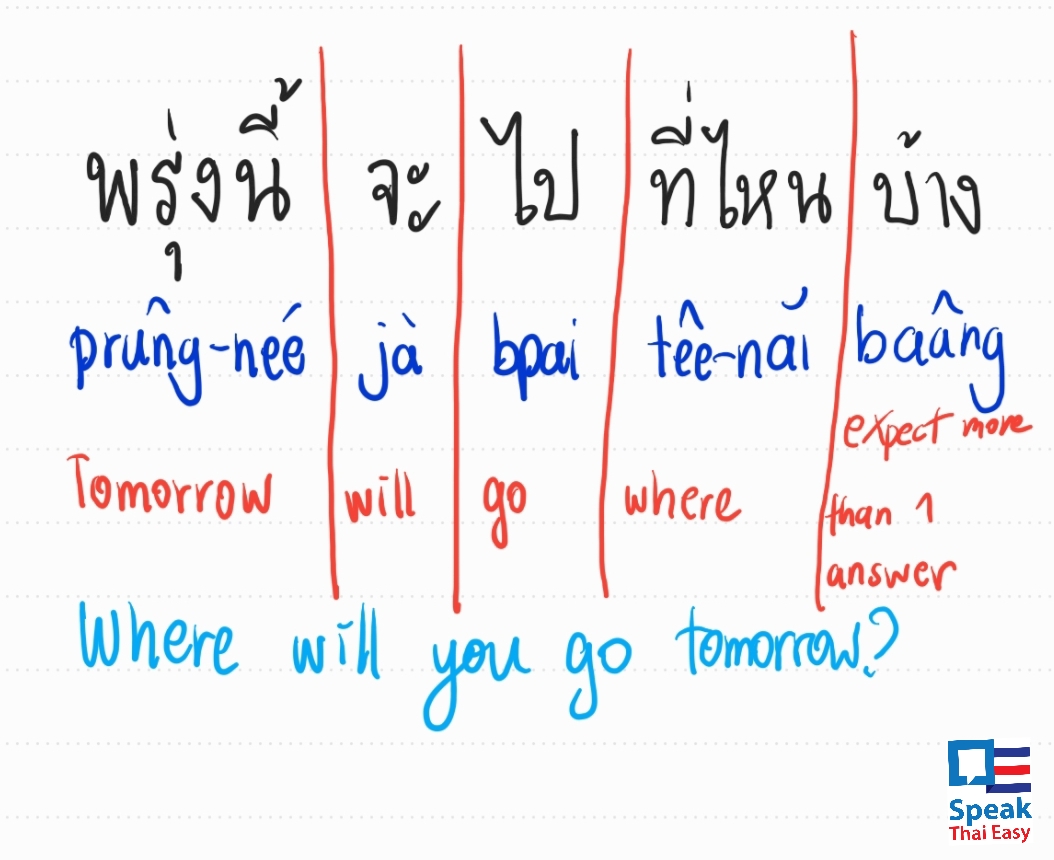 พรุ่งนี้ จะ ไป ที่ไหน บ้าง
prûng-neé jà bpai têe-nǎi baâng
Tomorrow will go where expect more
than 1
answer
Where will you go tomorrow?
Speak
Thai Easy